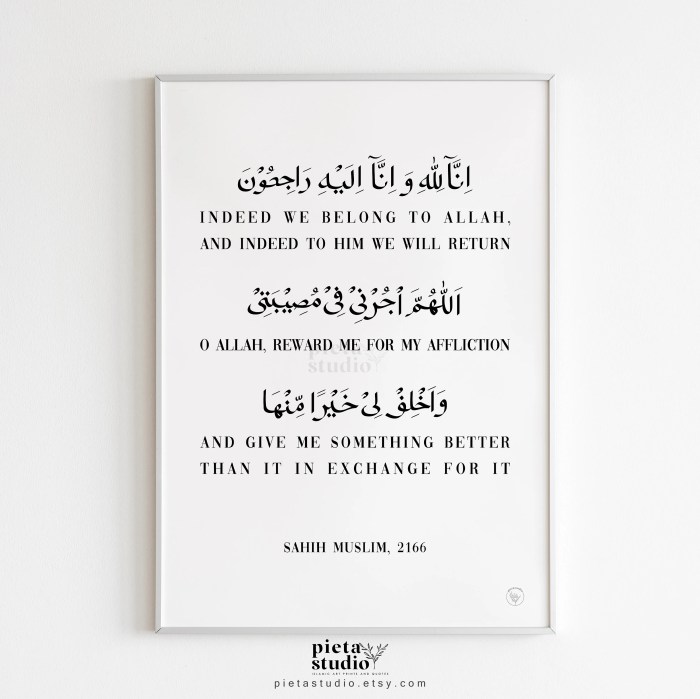 اِنَّآلِلّٰهِ وَ اِنَّآ اِلَيْهِ رَاجِعُوْنَ
INDEED WE BELONG TO ALLAH,
AND INDEED TO HIM WE WILL RETURN
اَللّٰهُمَّ اْجُرْنِيْ فِيْ مُصِيْبَتِيْ
O ALLAH, REWARD ME FOR MY AFFLICTION
pieta
studio
وَاَخْلِفْ لِيْ خَيْرًا مِّنْهَا
AND GIVE ME SOMETHING BETTER
THAN IT IN EXCHANGE FOR IT
SAHIH MUSLIM, 2166
pieta
studio
ISLAMIC ART PRINTS AND QUOTES
pietastudio.etsy.com